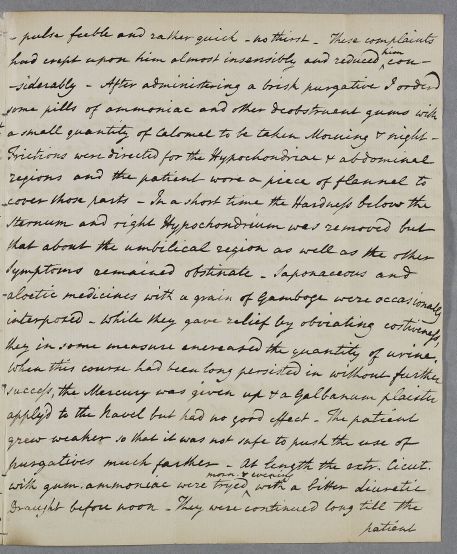 - pulse feeble and rather quick - no thirst - These complaints
had crept upon him almost insensibly and reduced him con-
-siderably - After administering a brisk purgative I orderd
some pills of ammoniac and other deobstruent gums with
a small quantity of Calomel to be taken Morning & night -
Frictions were directed for the Hypochondriac & abdominal
regions and the patient wore a piece of flannel to
cover those parts - In a short time the Hardness below the
sternum and right Hypochondrium was removed but
that about the umbilical region as well as the other
symptoms remained obstinate - Saponaceous and
aloetic medicines with a grain of Gamboge were occasionally
interposed - While they gave relief by obviating costiveness,
they in some measure encreased the quantity of urine.
When this course had been long persisted in without further
success, the Mercury was given up & a Galbanum plaister
applyd to the Navel but had no good effect - The patient
grew weaker so that it was not safe to push the use of
purgatives much farther - At length the extr. Cicut.
with gum. ammoniac were tryed morng & evening with a bitter diuretic
Draught before noon - They were continued long till the
patient